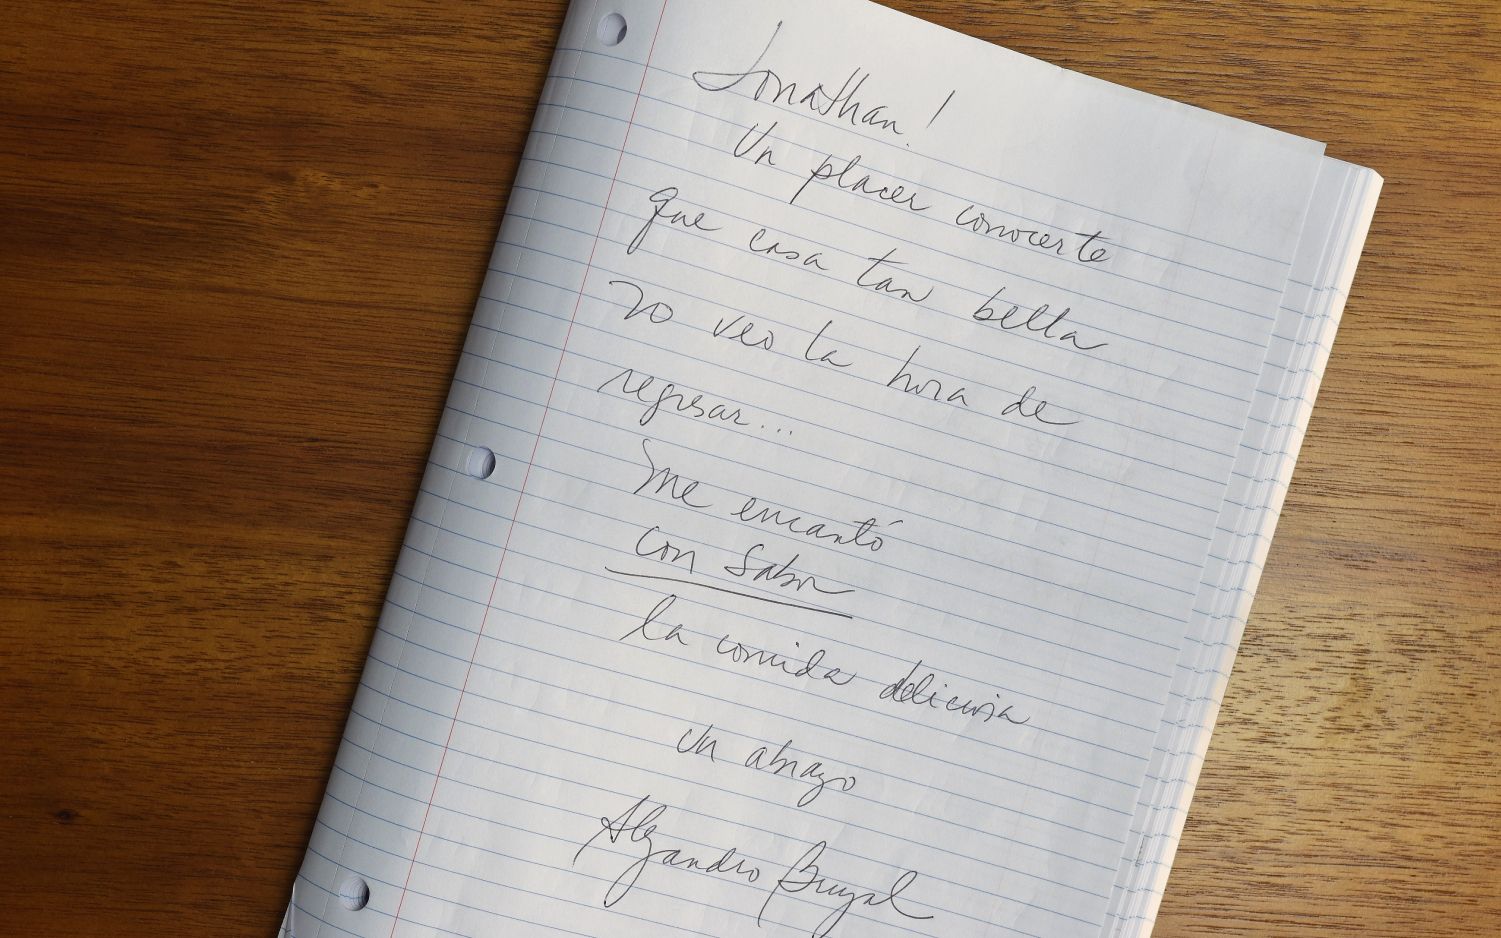 Jonathan!
Un placer conocerte
que casa tan bella
no veo la hora de
regresar...
me encantó
con sabor
la comida deliciosa
un abrazo
Alejandro